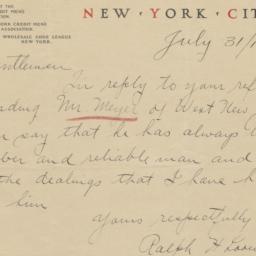 OF THE
CREDIT MENS
ATION.
YORK CREDIT MENS
ASSOCIATION.
WHOLESALE SHOE LEAGUE
NEW YORK.
NEW · YORK · CIT
July 31/1
entlemen
In reply to your re
ding Mr Meyer of West New
n say that he has always
ber and reliable man and
the dealings that I have h
him
Yours respectfully
Ralph H